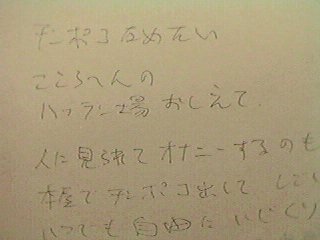 チンポコなめたい
ここらへんの
ハッテン場 おしえて.
人に見られて オナニーするのも
本屋で チンポコ出して しごい
いつでも 自由に いじくり